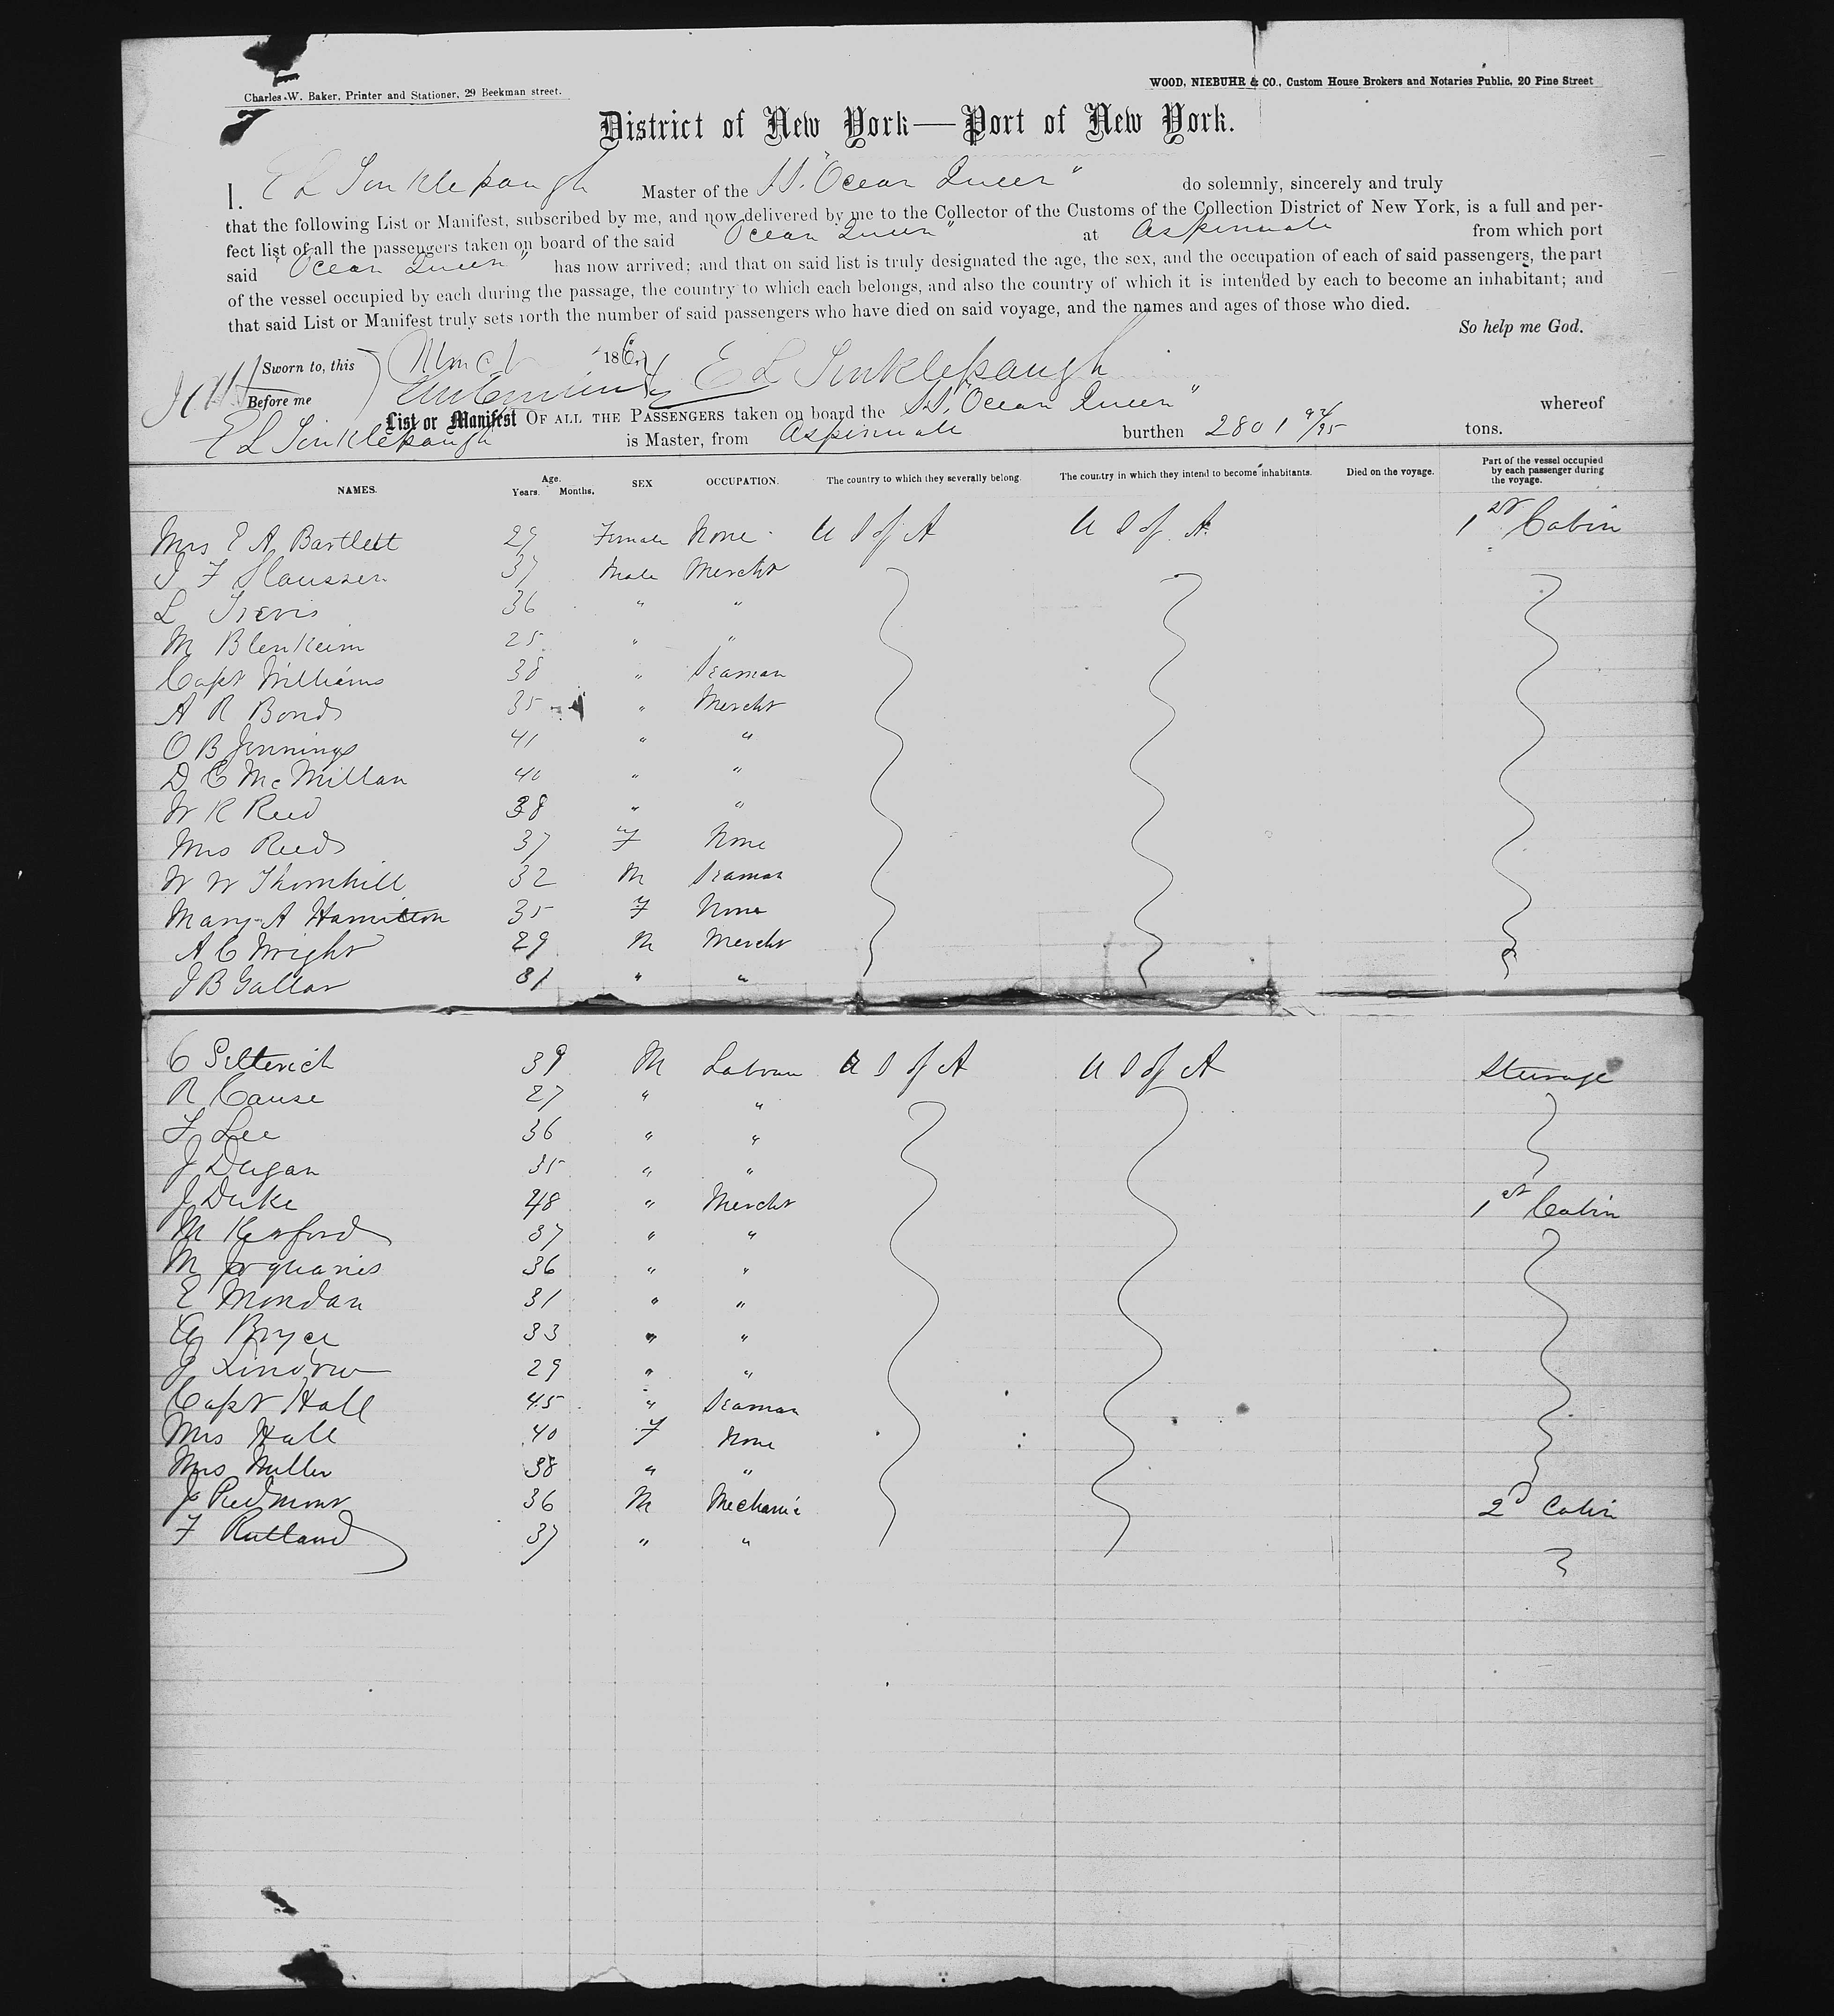 Charles W. Baker, Printer and Stationer, 29 Beekman street.
WOOD, NIEBUHR & CO., Custom House Brokers and Notaries Public, 20 Pine Street
District of New York—Port of New York.
I, E L Tinklepaugh Master of the S.S. "Ocean Queen" do solemnly, sincerely and truly
that the following List or Manifest, subscribed by me, and now delivered by me to the Collector of the Customs of the Collection District of New York, is a full and per-
fect list of all the passengers taken on board of the said "Ocean Queen" at Aspinwall from which port
said "Ocean Queen" has now arrived; and that on said list is truly designated the age, the sex, and the occupation of each of said passengers, the part
of the vessel occupied by each during the passage, the country to which each belongs, and also the country of which it is intended by each to become an inhabitant; and
that said List or Manifest truly sets forth the number of said passengers who have died on said voyage, and the names and ages of those who died.
So help me God.
Sworn to, this March 186 E L Tinklepaugh
Before me
List or Manifest OF ALL THE PASSENGERS taken on board the S.S. "Ocean Queen" whereof
E L Tinklepaugh is Master, from Aspinwall burthen 2801 92/95 tons.
NAMES. Age. Years. Months. SEX OCCUPATION. The country to which they severally belong. The country in which they intend to become inhabitants. Died on the voyage. Part of the vessel occupied by each passenger during the voyage.
Mrs E A Bartlett 29 Female None U S of A U S of A 1st Cabin
J F Slausser 37 Male Mercht
L Trevis 36 " "
M Blenkeim 25 " "
Capt Williams 38 " Seaman
A R Bond 35 " Mercht
O B Jennings 41 " "
D C McMillan 40 " "
W R Reed 38 " "
Mrs Reed 37 F None
W W Thornhill 32 M Seaman
Mary A Hamilton 35 F None
A C Wright 29 M Mercht
J B Gallar 31 " "
C Selterich 39 M Labour U S of A U S of A Steerage
R Cause 27 " "
F Lee 36 " "
J Dugan 35 " "
J Duke 48 " Mercht 1st Cabin
M Kerford 37 " "
M 36 " "
E Mondan 31 " "
Bryce 33 " "
J 29 " "
Capt Hall 45 " Seaman
Mrs Hall 40 F None
Mrs Miller 38 " "
J Redmont 36 M Mechanic 2d Cabin
F Rutland 37 " "